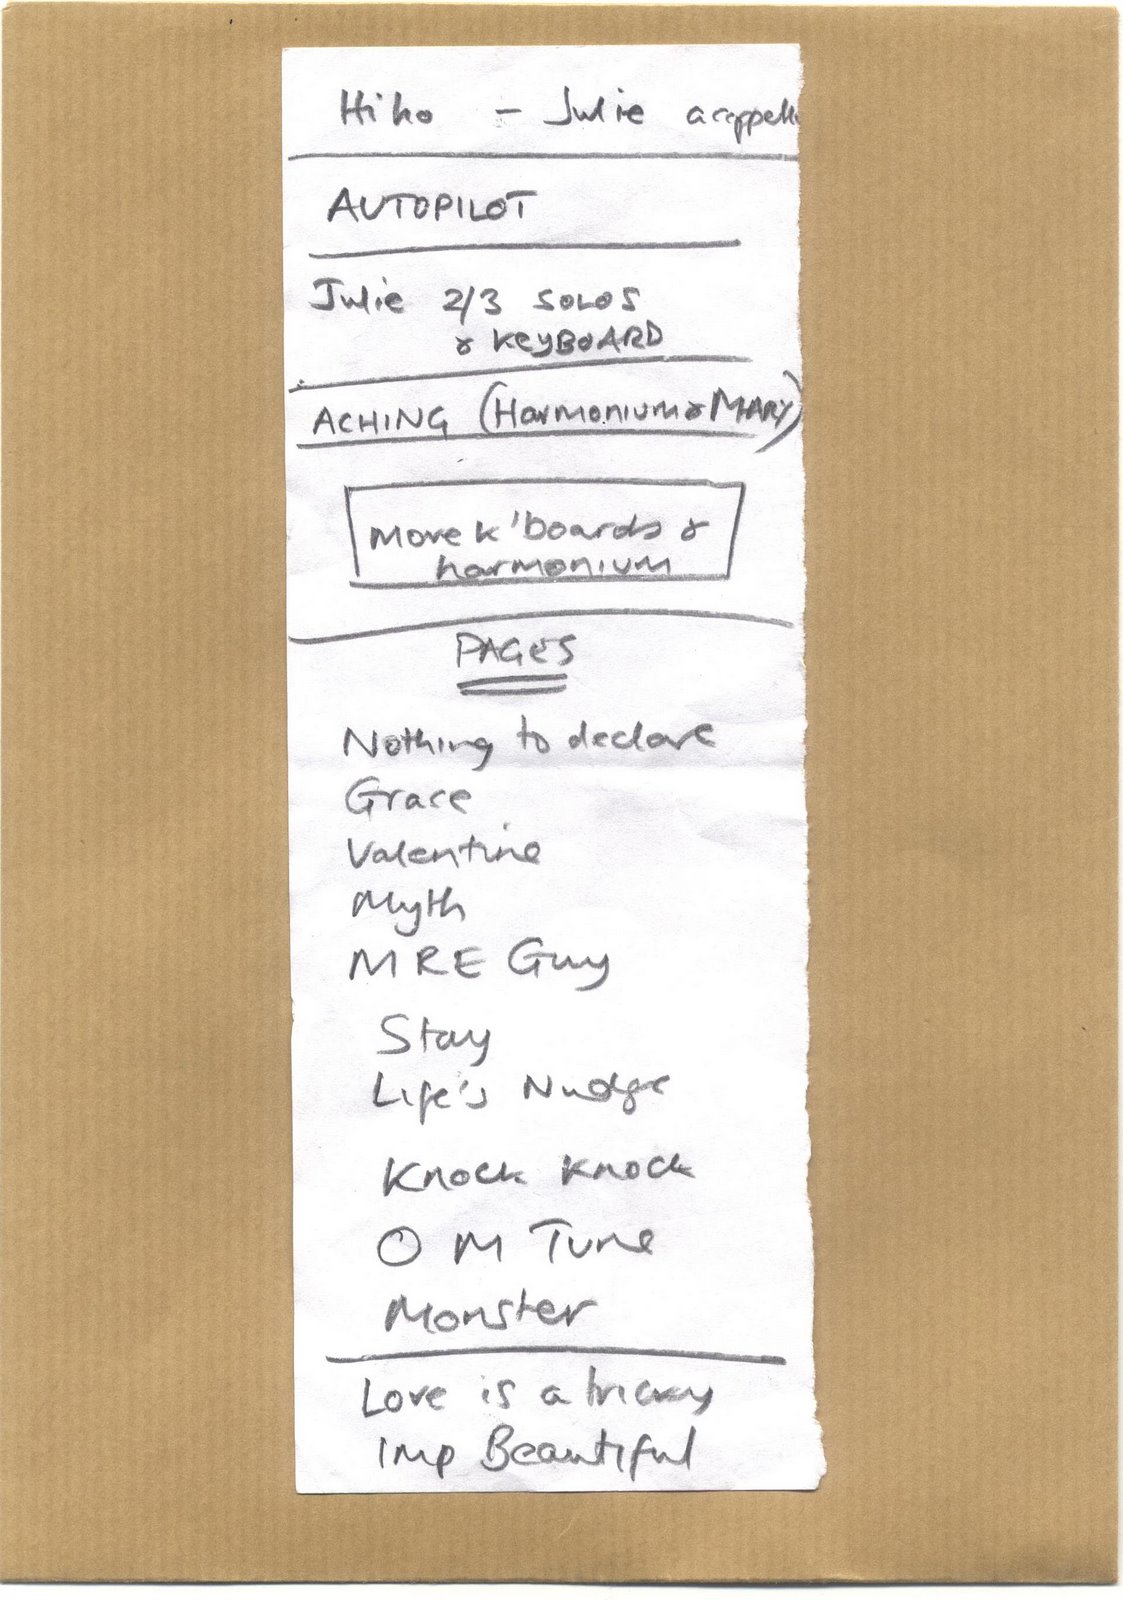 Hiho - Julie acappella
AUTOPILOT
Julie 2/3 SOLOS
& KEYBOARD
ACHING (Harmonium & MARY)
Move k'boards &
harmonium
PAGES
Nothing to declare
Grace
Valentine
Myth
MRE Guy
Stay
Life's Nudge
Knock Knock
O M Tune
Monster
Love is a tricky
Imp Beautiful